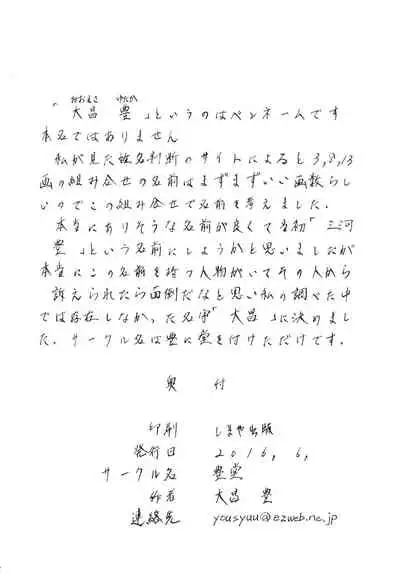 おおまさ ゆたか
「大昌 豊」というのはペンネームです
本名ではありません
私が見た姓名判断のサイトによると3,8,13
画の組み合せの名前はまずまずいい画数らし
いのでこの組み合せで名前を考えました.
本当にありそうな名前が良くて当初「三河
豊」という名前にしようかと思いましたが
本当にこの名前を持つ人物がいてその人から
訴えられたら面倒だなと思い私の調べた中
では存在しなかった名字「大昌」に決めまし
た.サークル名は豊に堂を付けただけです.
奥 付
印刷 しまや出版
発行日 2016,6,
サークル名 豊堂
作者 大昌 豊
連絡先 yousyuu@ezweb.ne.jp